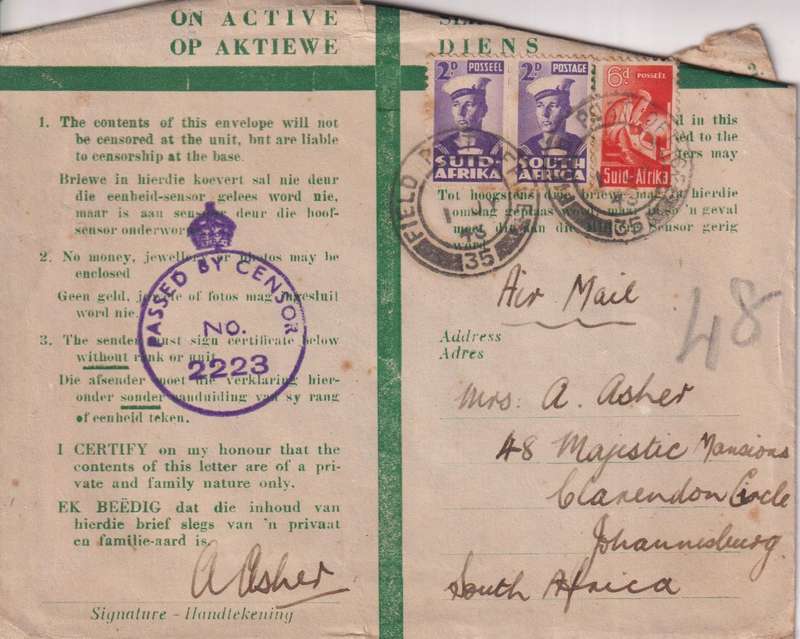 ON ACTIVE
OP AKTIEWE DIENS
1. The contents of this envelope will not
be censored at the unit, but are liable
to censorship at the base.
Briewe in hierdie koevert sal nie deur
die eenheid-sensor gelees word nie,
maar is aan deur die hoof-
2. No money, photos may be
enclosed
Geen geld, of fotos mag
word nie.
3. The sender must sign certificate below
without rank or unit
Die afsender moet die verklaring hier-
onder sonder aanduiding van sy rang
of eenheid teken.
I CERTIFY on my honour that the
contents of this letter are of a pri-
vate and family nature only.
EK BEËDIG dat die inhoud van
hierdie brief slegs van 'n privaat
en familie-aard is.
A Asher
Signature - Handtekening
PASSED BY CENSOR
NO.
2223
2D POSSEEL
SUID-
AFRIKA
2D POSTAGE
SOUTH
AFRICA
6d. POSSEËL
Suid-Afrika
FIELD
35
35
in this
to the
may
Tot hoogstens drie briewe mag in hierdie
omslag geplaas word, geval
Sensor gerig
word.
Air Mail
48
Address
Adres
Mrs. A. Asher
48 Majestic Mansions
Clarendon Circle
Johannesburg.
South Africa